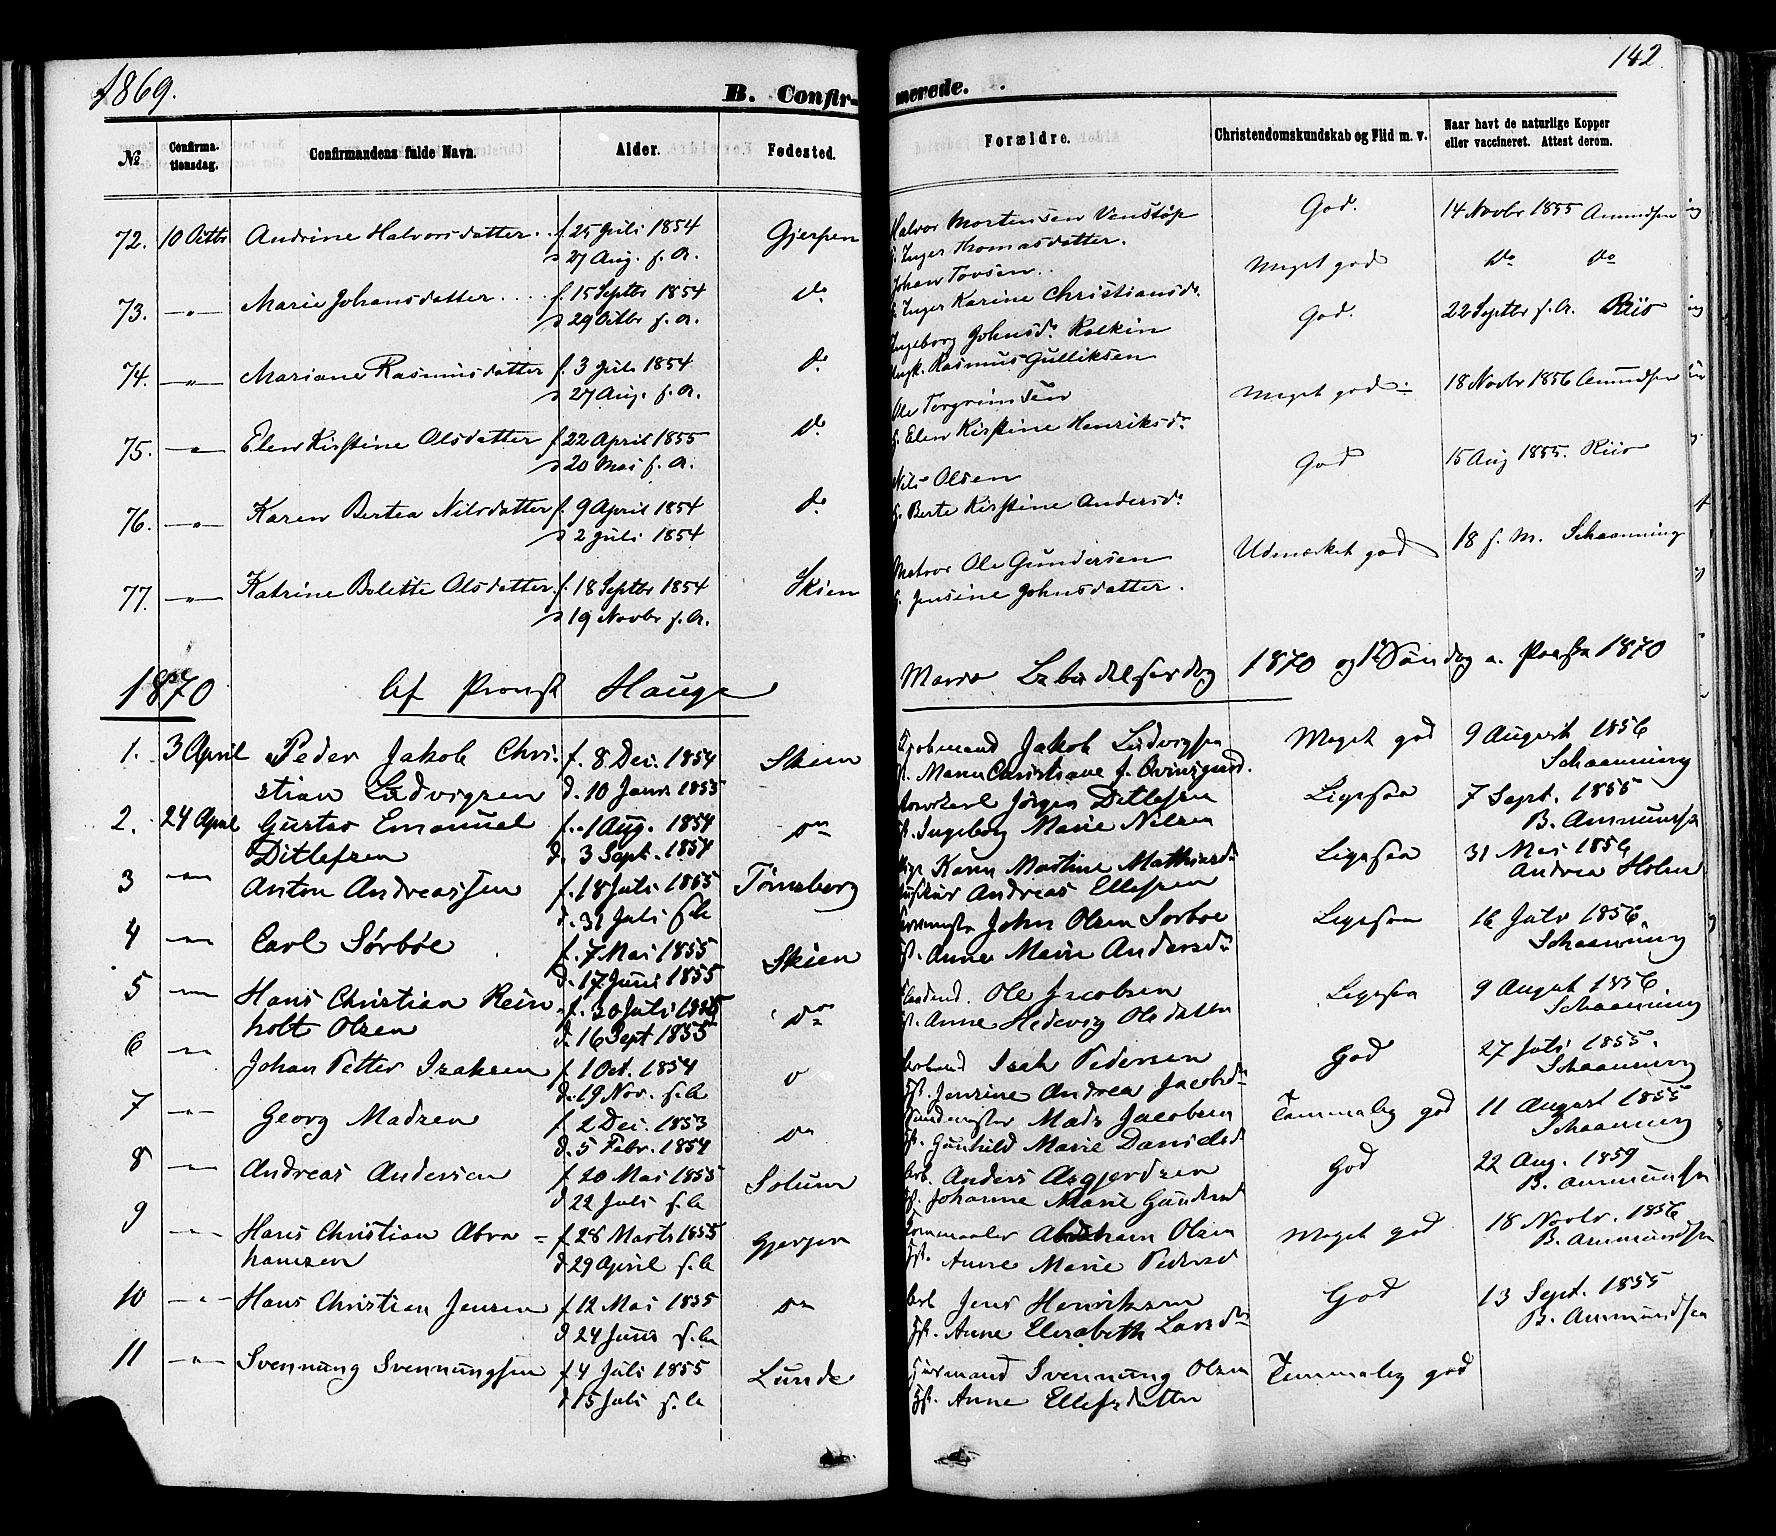 1869.
142
B. Confir-
merede.
№
Confirma-
tionsdag.
Confirmandens fulde Navn.
Alder.
Fødested.
Forældre.
Christendomskundskab og Flid m. v.
Naar havt de naturlige Kopper
eller vaccineret. Attest derom.
72. 10 Octbr Andrine Halvorsdatter. f. 25 Juli 1854 Gjerpen Halvor Mortensen Venstøp God. 14 Novbr 1855 Amundsen
d 27 Aug. s. A. Inger Thomasdatter.
73. -"- Marie Johansdatter f. 15 Septbr 1854 do Johan Tovsen. Meget god do do
d 29 Octbr s. A. Inger Karine Christiansdr.
74. -"- Mariane Rasmusdatter f. 3 Juli 1854 do Ingeborg Johnsdr God. 22 Septbr s. A. Riis
d 27 Aug. s. A. Rasmus Gulliksen
75. -"- Elen Kirstine Olsdatter f. 22 April 1855 do Ole Torgrimsen Meget god 18 Novbr 1856 Amundsen
d 20 Mai s. A. Elen Kirstine Henriksdr
76. -"- Karen Bertea Nilsdatter f. 9 April 1854 do Nils Olsen God 15 Aug 1855. Riis
d 2 Juli 1854 Berte Kirstine Andersdr
77. -"- Katrine Bolette Olsdatter. f. 18 Septbr 1854 Skien Matros Ole Gundersen Udmærket god 18 s. M. Schaanning
d 19 Novbr s. A. Jensine Johnsdatter.
1870 Af Provst Hauge Maria Bebudelsesdag 1870 og 1ste Søndag e. Paaske 1870
1. 3 April Peder Jakob Chri- f. 8 Dec. 1854 Skien Jakob Ludvigsen Meget god 9 August 1856
stian Ludvigsen d. 10 Janr 1855 Maren Christiane f. Schaanning
2. 24 April Gustav Emanuel f. 1 Aug. 1854 do Jørgen Ditlefsen Ligesaa 7 Sept. 1855
Ditlefsen d. 3 Sept. 1854 Ingeborg Marie Nilsen B. Ammundsen
3 -"- Anton Andreassen f. 18 Juli 1855 Tønsberg Pige Karen Martine Mathisdr Ligesaa 31 Mai 1856
d. 31 Juli s. A. Andreas Ellefsen Andrea Holm
4 -"- Carl Sørbøe f. 7 Mai 1855 Skien John Olsen Sørbøe Ligesaa 16 Julv 1856.
d. 17 Juni 1855 Anne Marie Andersdr Schaanning
5 -"- Hans Christian Rein- f. 30 Juli 1855 do Ole Jacobsen Ligesaa 9 August 1856
holt Olsen d. 16 Sept 1855 Anne Hedevig Olsdatter Schaanning
6 -"- Johan Petter Isaksen f. 1 Oct. 1854 Isak Pedersen God 27 Juli 1855.
d. 19 Nov. s. A. Jensine Andrea Jacobsdr Schaanning
7 -"- Georg Madsen f. 2 Dec. 1853 do Mads Jacobsen Temmelig god 11 August 1855
d. 5 Febr. 1854 Gunhild Marie Danielsdr Schaanning
8 -"- Andreas Andersen f. 20 Mai 1855 Solum Arb. Anders Asgjerdsen God 22 Aug. 1859
d 22 Juli s. A. Johanne Marie Gundersd B. Ammundsen
9 -"- Hans Christian Abra- f. 28 Marts 1855 Gjerpen Abraham Olsen Meget god 18 Novbr. 1856
hamsen d 29 April s. A. Anne Marie Pedersd B. Ammundsen
10 -"- Hans Christian Jensen f. 12 Mai 1855 do Arb Jens Henriksen God 13 Sept. 1855
d 24 Juni s. A. Anne Elisabeth Larsdr B. Ammundsen
11 -"- Svennung Svennungsen f. 4 Juli 1855 Lunde Huusmand Svennung Olsen Temmelig god
d 15 Juli s. A. Anne Ellefsdatter